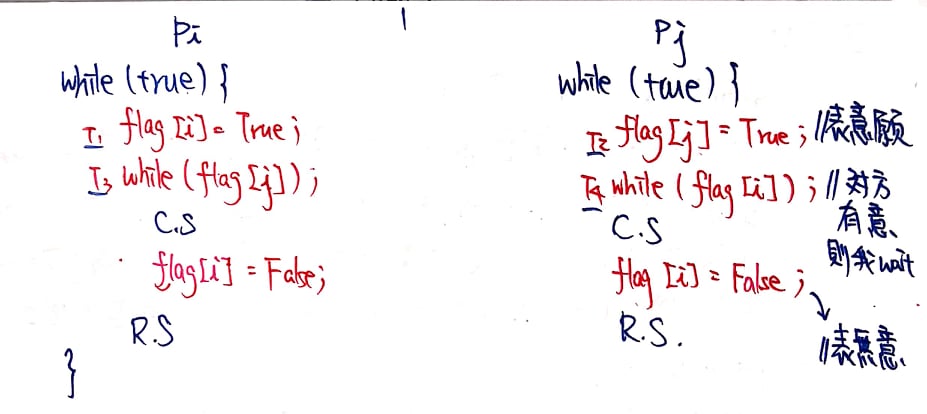 Pi
while (true) {
T1 flag [i] = True;
T3 while (flag [j]);
C.S
flag[i] = False;
R.S
}
Pj
while (true) {
T2 flag[j] = True; //表意願
T4 while (flag [i]); //對方
有意、
則我wait
C.S
flag [i] = False;
//表無意、
R.S.